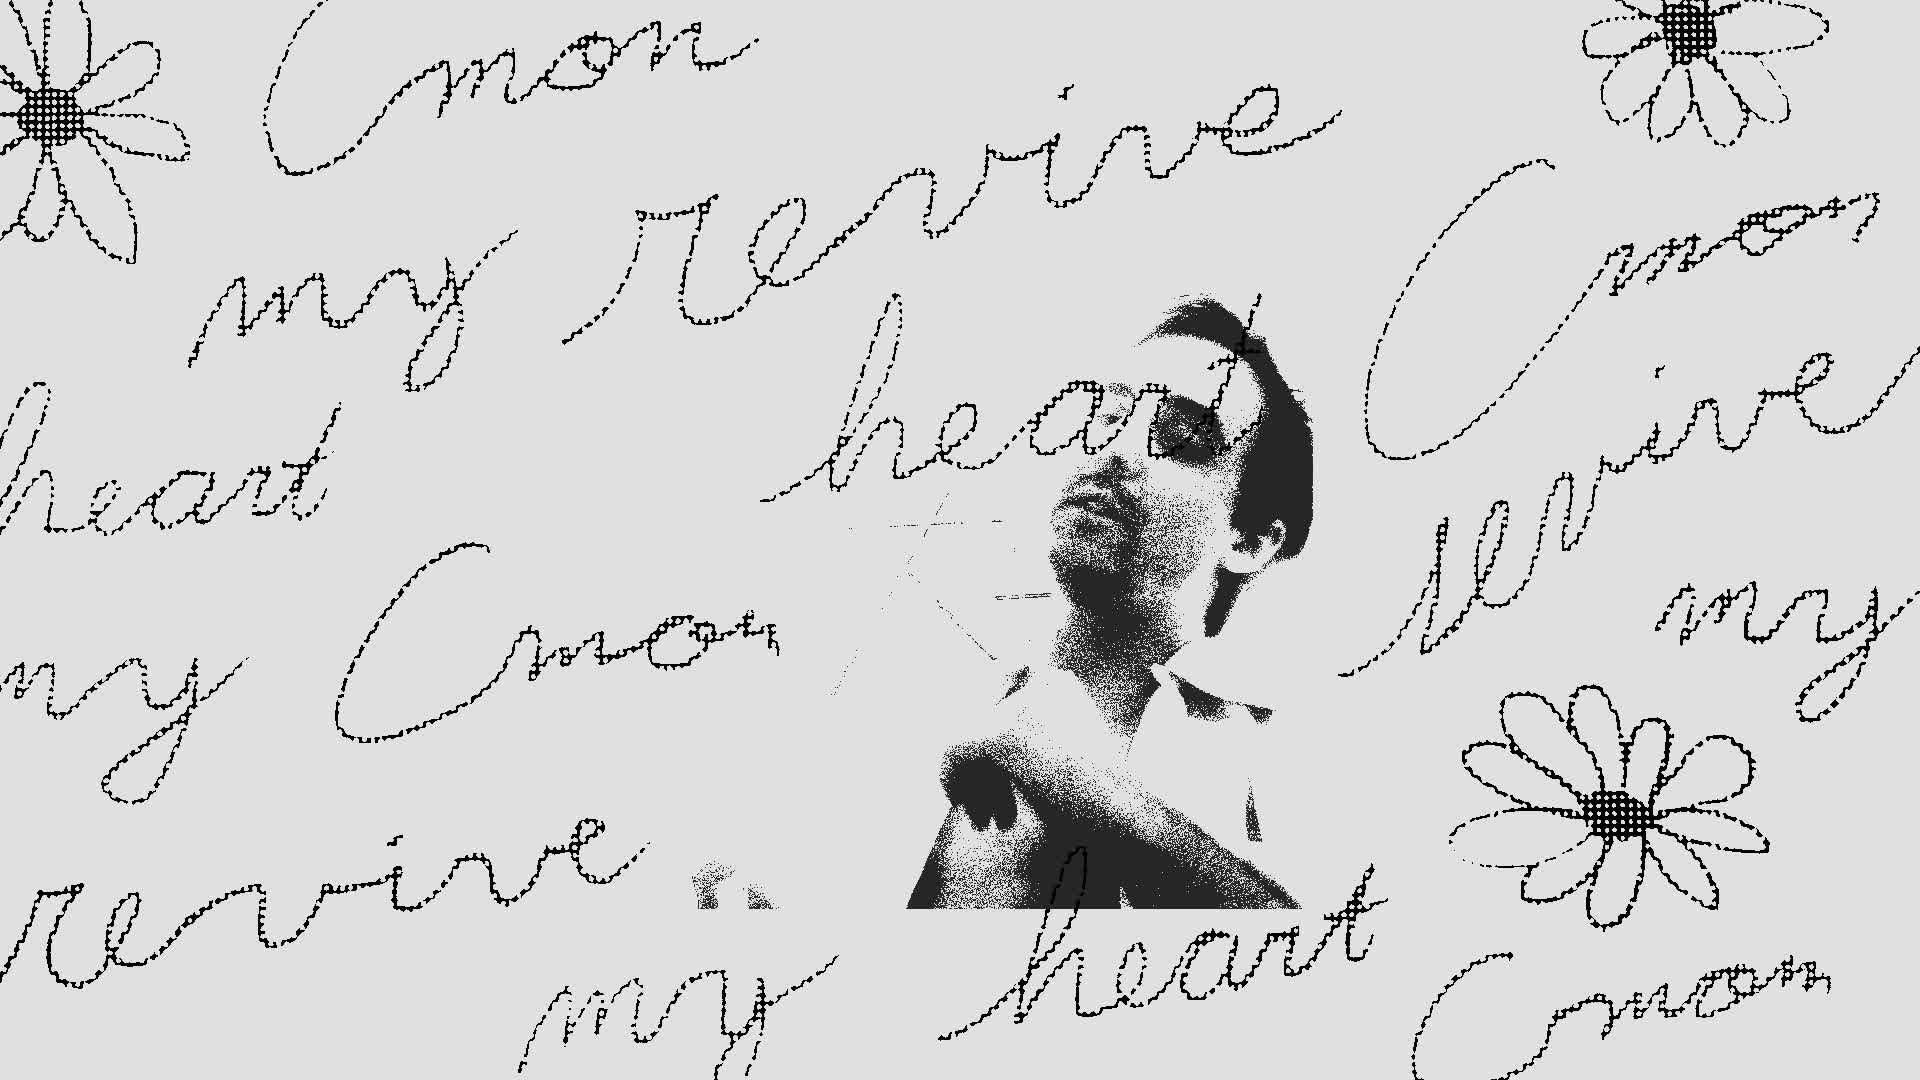 Cmon
my revive
heart
Cmon
revive
my
heart
my Cmon
revive
my
heart
Cmon